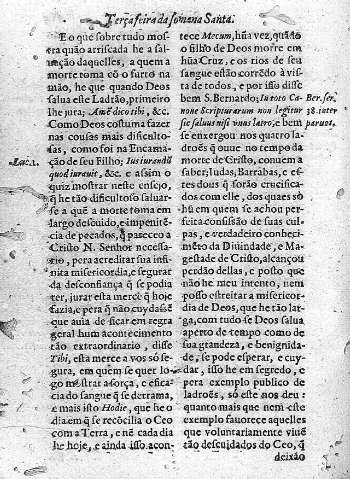 Terçafeira da somana Santa.
E o que sobre tudo mos-
tra quão arriscada he a sal-
uação daquelles, a quem a
morte toma cõ o furto na
mão, he que quando Deos
salua este Ladrão, primeiro
lhe jura; Amẽ dico tibi, &c.
Como Deos costuma fazer
nas cousas mais dificulto-
sas, como foi na Encarna-
ção de seu Filho; Ius iurandũ
Luc. 1.
quod iurauit, &c. e assim o
quiz mostrar neste ensejo,
q̃ he tão dificultoso saluar-
se a quẽ a morte toma em
largo descuido, e impenitẽ-
cia de peccados, q̃ pareceo a
Cristo N. Senhor necessa-
rio, pera acreditar sua infi-
nita misericordia, e segurar
da desconfiança q̃ se podia
ter, jurar esta merce q̃ hoje
fazia, e pera q̃ não cuydasẽ
que auia de ficar em regra
geral hum acontecimento
tão extraordinario, disse
Tibi, esta merce a vos só se-
gura, em quem se quer lo-
go mostrar a força, e efica-
cia do sangue q̃ se derrama,
e mais isto Hodie, que he o
dia em q̃ se recõcilia o Ceo
com a Terra, e nẽ cada dia
he hoje, e ainda isso acon-
tece Mecum, hũa vez, quãdo
o filho de Deos morre em
hũa Cruz, e os rios de seu
sangue estão corrẽdo à vis-
ta de todos, e por isso disse
S. Bernardo; In toto Ca-
none Scripturarum non legitur
se saluasse nisi vnus latro, e bem
Ber. ser.
38. inter
paruos.
se enxergou nos quatro la-
drões q̃ ouue no tempo da
morte de Christo, conuem a
saber; Iudas, Barrabas, e es-
tes dous q̃ forão crucifixa-
dos com elle, dos quaes só
hũ em quem se achou per-
feita confissão de suas cul-
pas, e verdadeiro conheci-
mẽto da Diuindade, e Ma-
gestade de Cristo, alcançou
perdão dellas, e posto que
não he meu intento, nem
posso estreitar a misericor-
dia de Deos, que he tão lar-
ga, com tudo se Deos salua
aperto de tempo como de
sua grandeza, e benignida-
de, se pode esperar, e cuy-
dar, isso he em segredo, e
pera exemplo publico de
ladroẽs, só este nos deu:
quanto mais que nem este
exemplo fauorece aquelles
que voluntariamente viuẽ
tão descuidados do Ceo, q̃
deixão